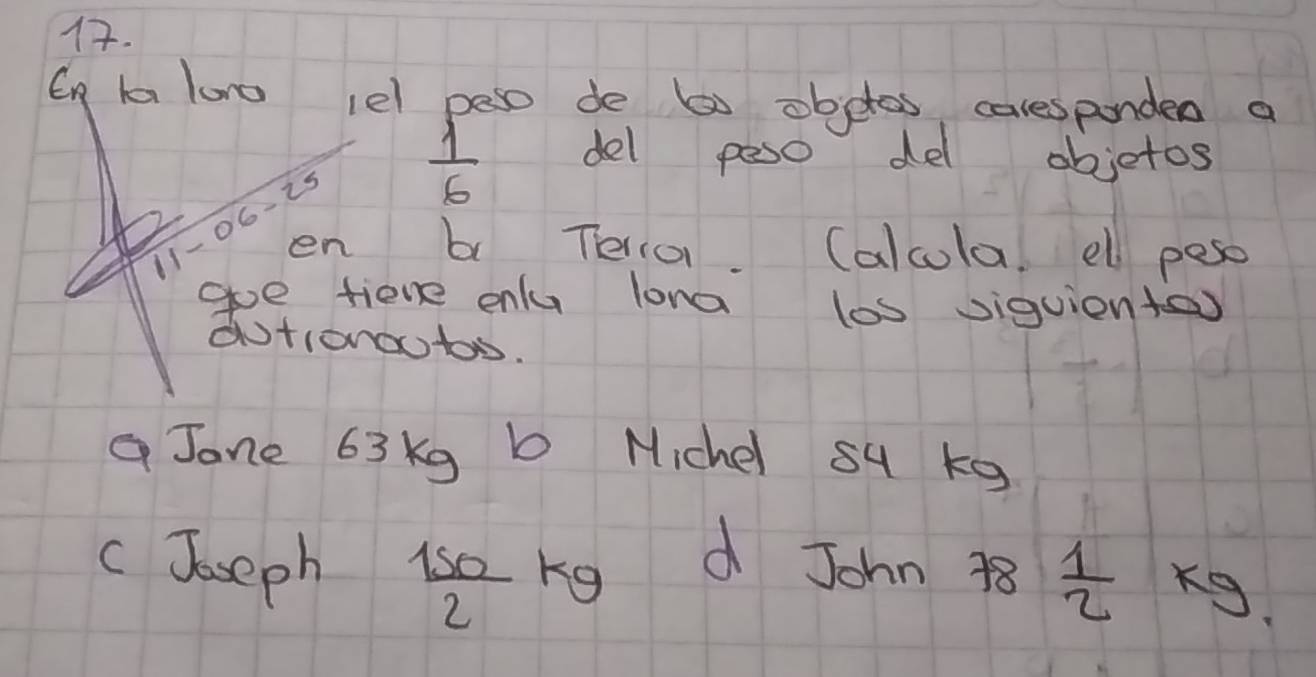 17.
En la luna el peso de los objetos corresponden a
1/6 del peso del objetos
11-06-25
en la Tierra. Calcula. el peso
que tiene en la luna los siguientes
astronautas.
a Jane 63 kg b Michel 54 kg
c Joseph 150/2 kg d John 78 1/2 kg.